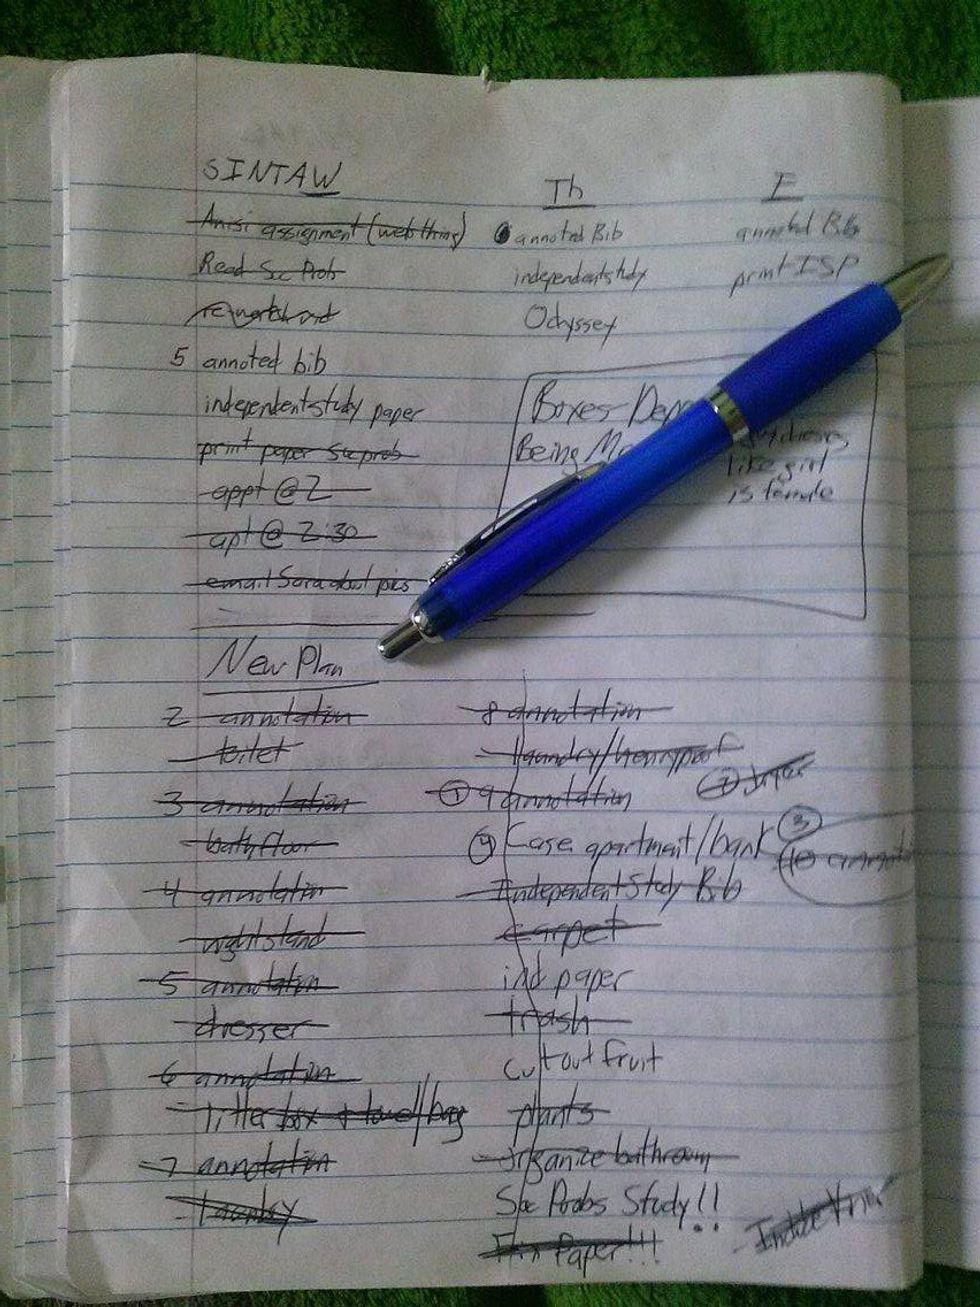 SINTAW
Anisi assignment (web thing)
Read Soc Prob
5 annoted bib
independent study paper
print paper Soc prob
appt @ 2
apt @ 2:30
email Sara about pics
Th
annoted Bib
independent study
Odyssey
F
annoted Bib
print ISP
Boxes
Being
like girl
is female
New Plan
2 annotation
toilet
3 annotation
bath floor
4 annotation
nightstand
5 annotation
dresser
6 annotation
litter box + towel/bag
7 annotation
laundry
8 annotation
laundry/
1 9 annotation
2 dryer
3
10
4 Case apartment/bank
Independent Study Bib
carpet
ind paper
trash
cut out fruit
plants
organize bathroom
Soc Probs Study!!
Paper!!!